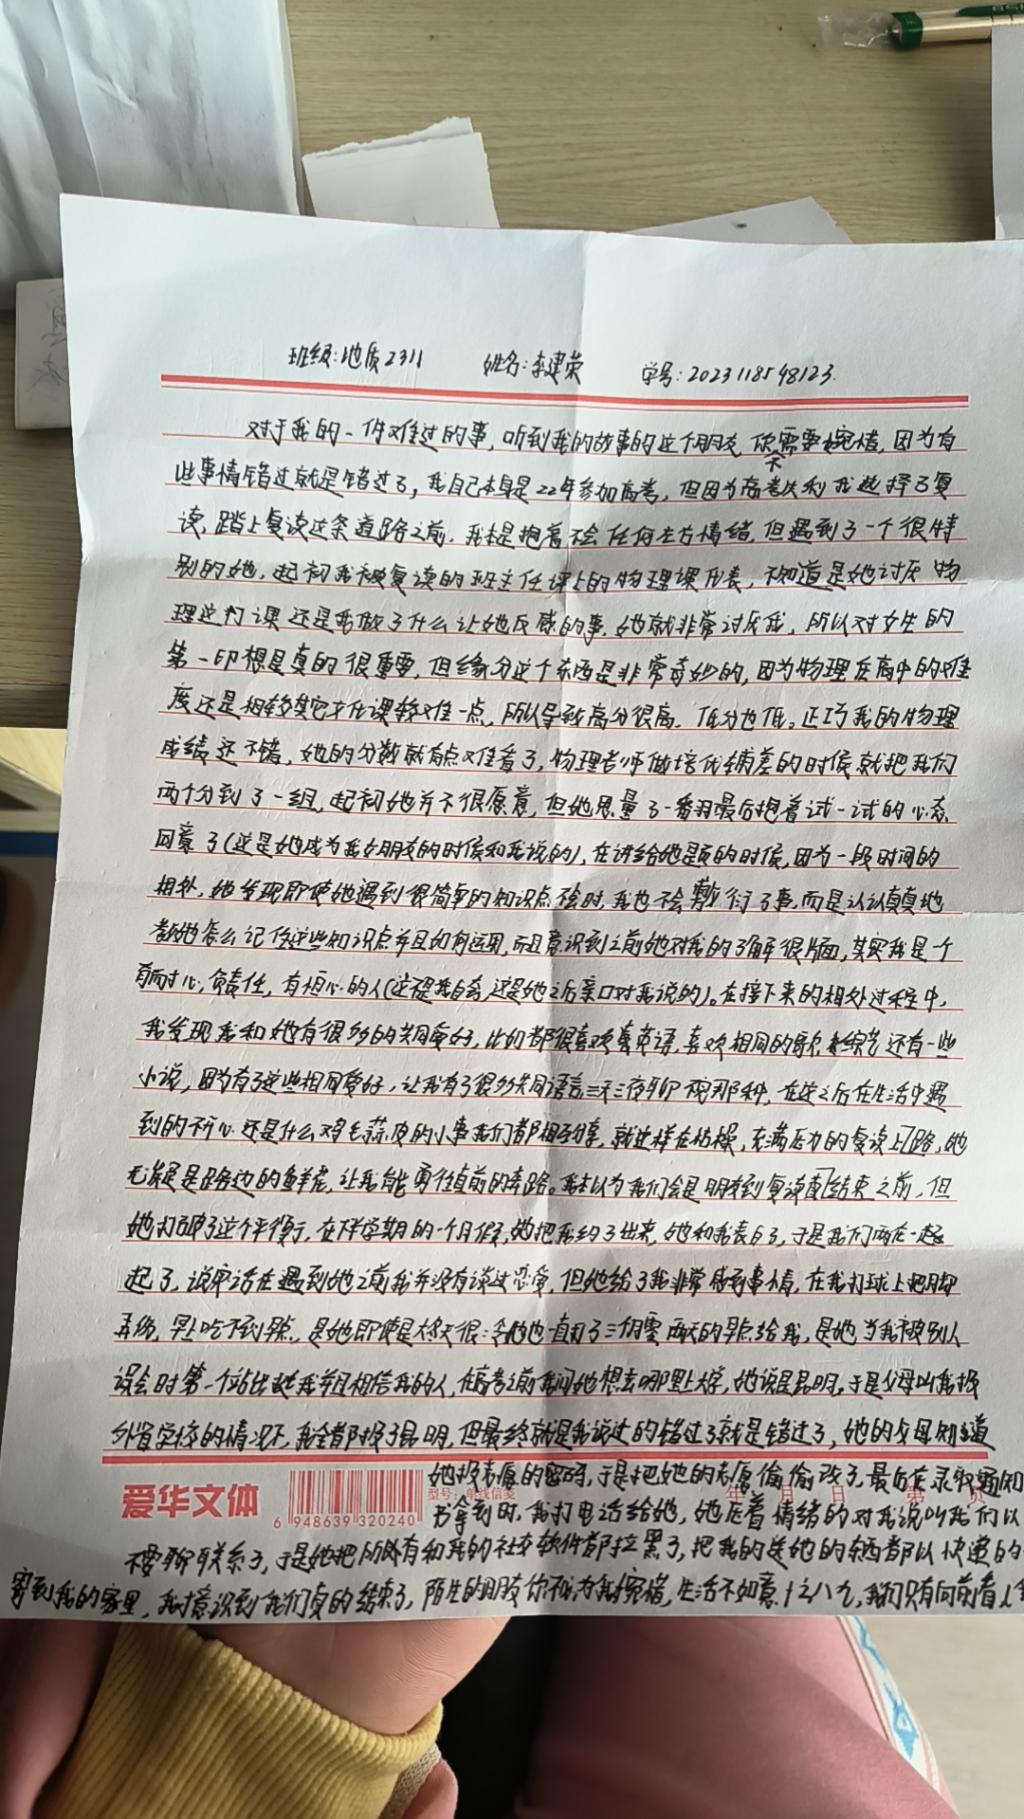 班级:地质2311 姓名:李建荣 学号:2023118548123.
对于我的一件难过的事,听到我的故事的这个朋友 你不需要惋惜,因为有
些事情错过就是错过了,我自己本身是22年参加高考,但因为高考失利我选择了复
读,踏上复读这条道路之前,我本是抱着不会任何左右情绪,但遇到了一个很特
别的她,起初我被复读的班主任课上的物理课代表,不知道是她讨厌物
理这门课还是我做了什么让她反感的事,她就非常讨厌我,所以对女生的
第一印想是真的很重要,但缘分这个东西是非常奇妙的,因为物理在高中的难
度还是相较其它来化课较难一点,所以导致高分很高,低分也低。正巧我的物理
成绩还不错,她的分数就有点难看了,物理老师做培优辅差的时候就把我们
两个分到了一组,起初她并不很愿意,但她思量了一番最后抱着试一试的心态
同意了(这是她成为我女朋友的时候和我说的),在讲给她题的时候,因为一段时间的
相处,她发现即使她遇到很简单的知识点不会时,我也不会敷衍了事,而是认认真真地
教她怎么记住这些知识点并且如何运用,而且意识到之前她对我的了解很片面,其实我是一个
有耐心,负责任,有恒心的人(这不是我自夸,这是她之后亲口对我说的)。在接下来的相处过程中,
我发现我和她有很多的共同爱好,比如都很喜欢英语,喜欢相同的歌 综艺还有一些
小说,因为有了这些相同爱好,让我有了很多共同语言 三天三夜聊 那种,在这之后在生活中遇
到的不开心还是什么鸡毛蒜皮的小事我们都相互分享,就这样在枯燥,充满压力的复读上路,她
无疑是路边的鲜花,让我能勇往直前的奔路。我本以为我们会是朋友到复读结束之前,但
她打破了这个平衡,在下学期的一个月假,她把我约了出来,她和我表白了,于是我们两在一起
起了,说实话在遇到她之前我并没有谈过恋爱,但她给了我非常感动事情,在我打球上把脚
弄伤,早上吃不到早点,是她即使是大冬天很冷她也一直 了三个星 的早点给我,是她当我被别人
误会时第一个站出 我并且相信我的人,在高考之前我问她想去哪里上大学,她说是昆明,于是父母叫我报
外省学校的情况下,我全都报了昆明,但最终就是我说过的错过了就是错过了,她的父母知道
她报志愿的密码,于是把她的志愿偷偷改了,最后在录取通知
书拿到时,我打电话给她,她压着情绪的对我说叫我们以
不要聊联系了,于是她把所有和我的社交软件都拉黑了,把我的送她的东西都以快递的
寄到我的家里,我才意识到我们真的结束了,陌生的朋友你不必为我惋惜,生活不如意十之八九,我们只有向前看
爱华文体
6 948639 320240
型号:单线信笺
年 月 日 第 页